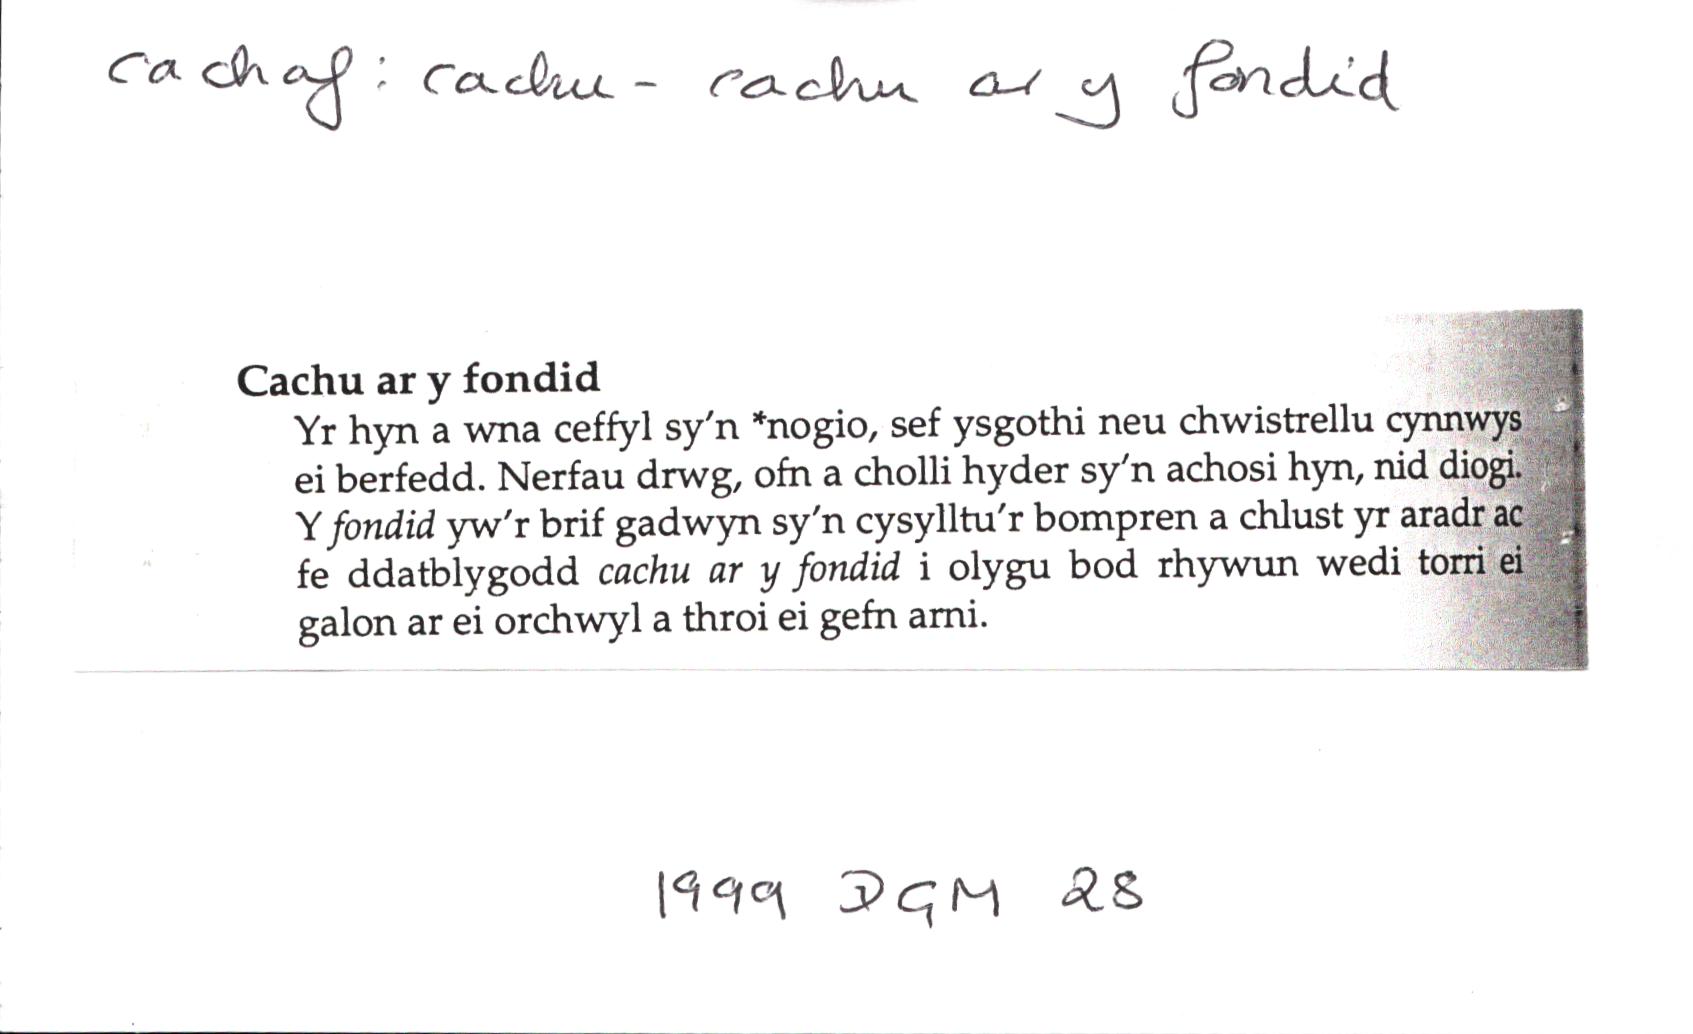 cachaf: cachu - cachu ar y fondid
Cachu ar y fondid
Yr hyn a wna ceffyl sy'n *nogio, sef ysgothi neu chwistrellu cynnwys
ei berfedd. Nerfau drwg, ofn a cholli hyder sy'n achosi hyn, nid diogi.
Y fondid yw'r brif gadwyn sy'n cysylltu'r bompren a chlust yr aradr ac
fe ddatblygodd cachu ar y fondid i olygu bod rhywun wedi torri ei
galon ar ei orchwyl a throi ei gefn arni.
1999 DGM 28